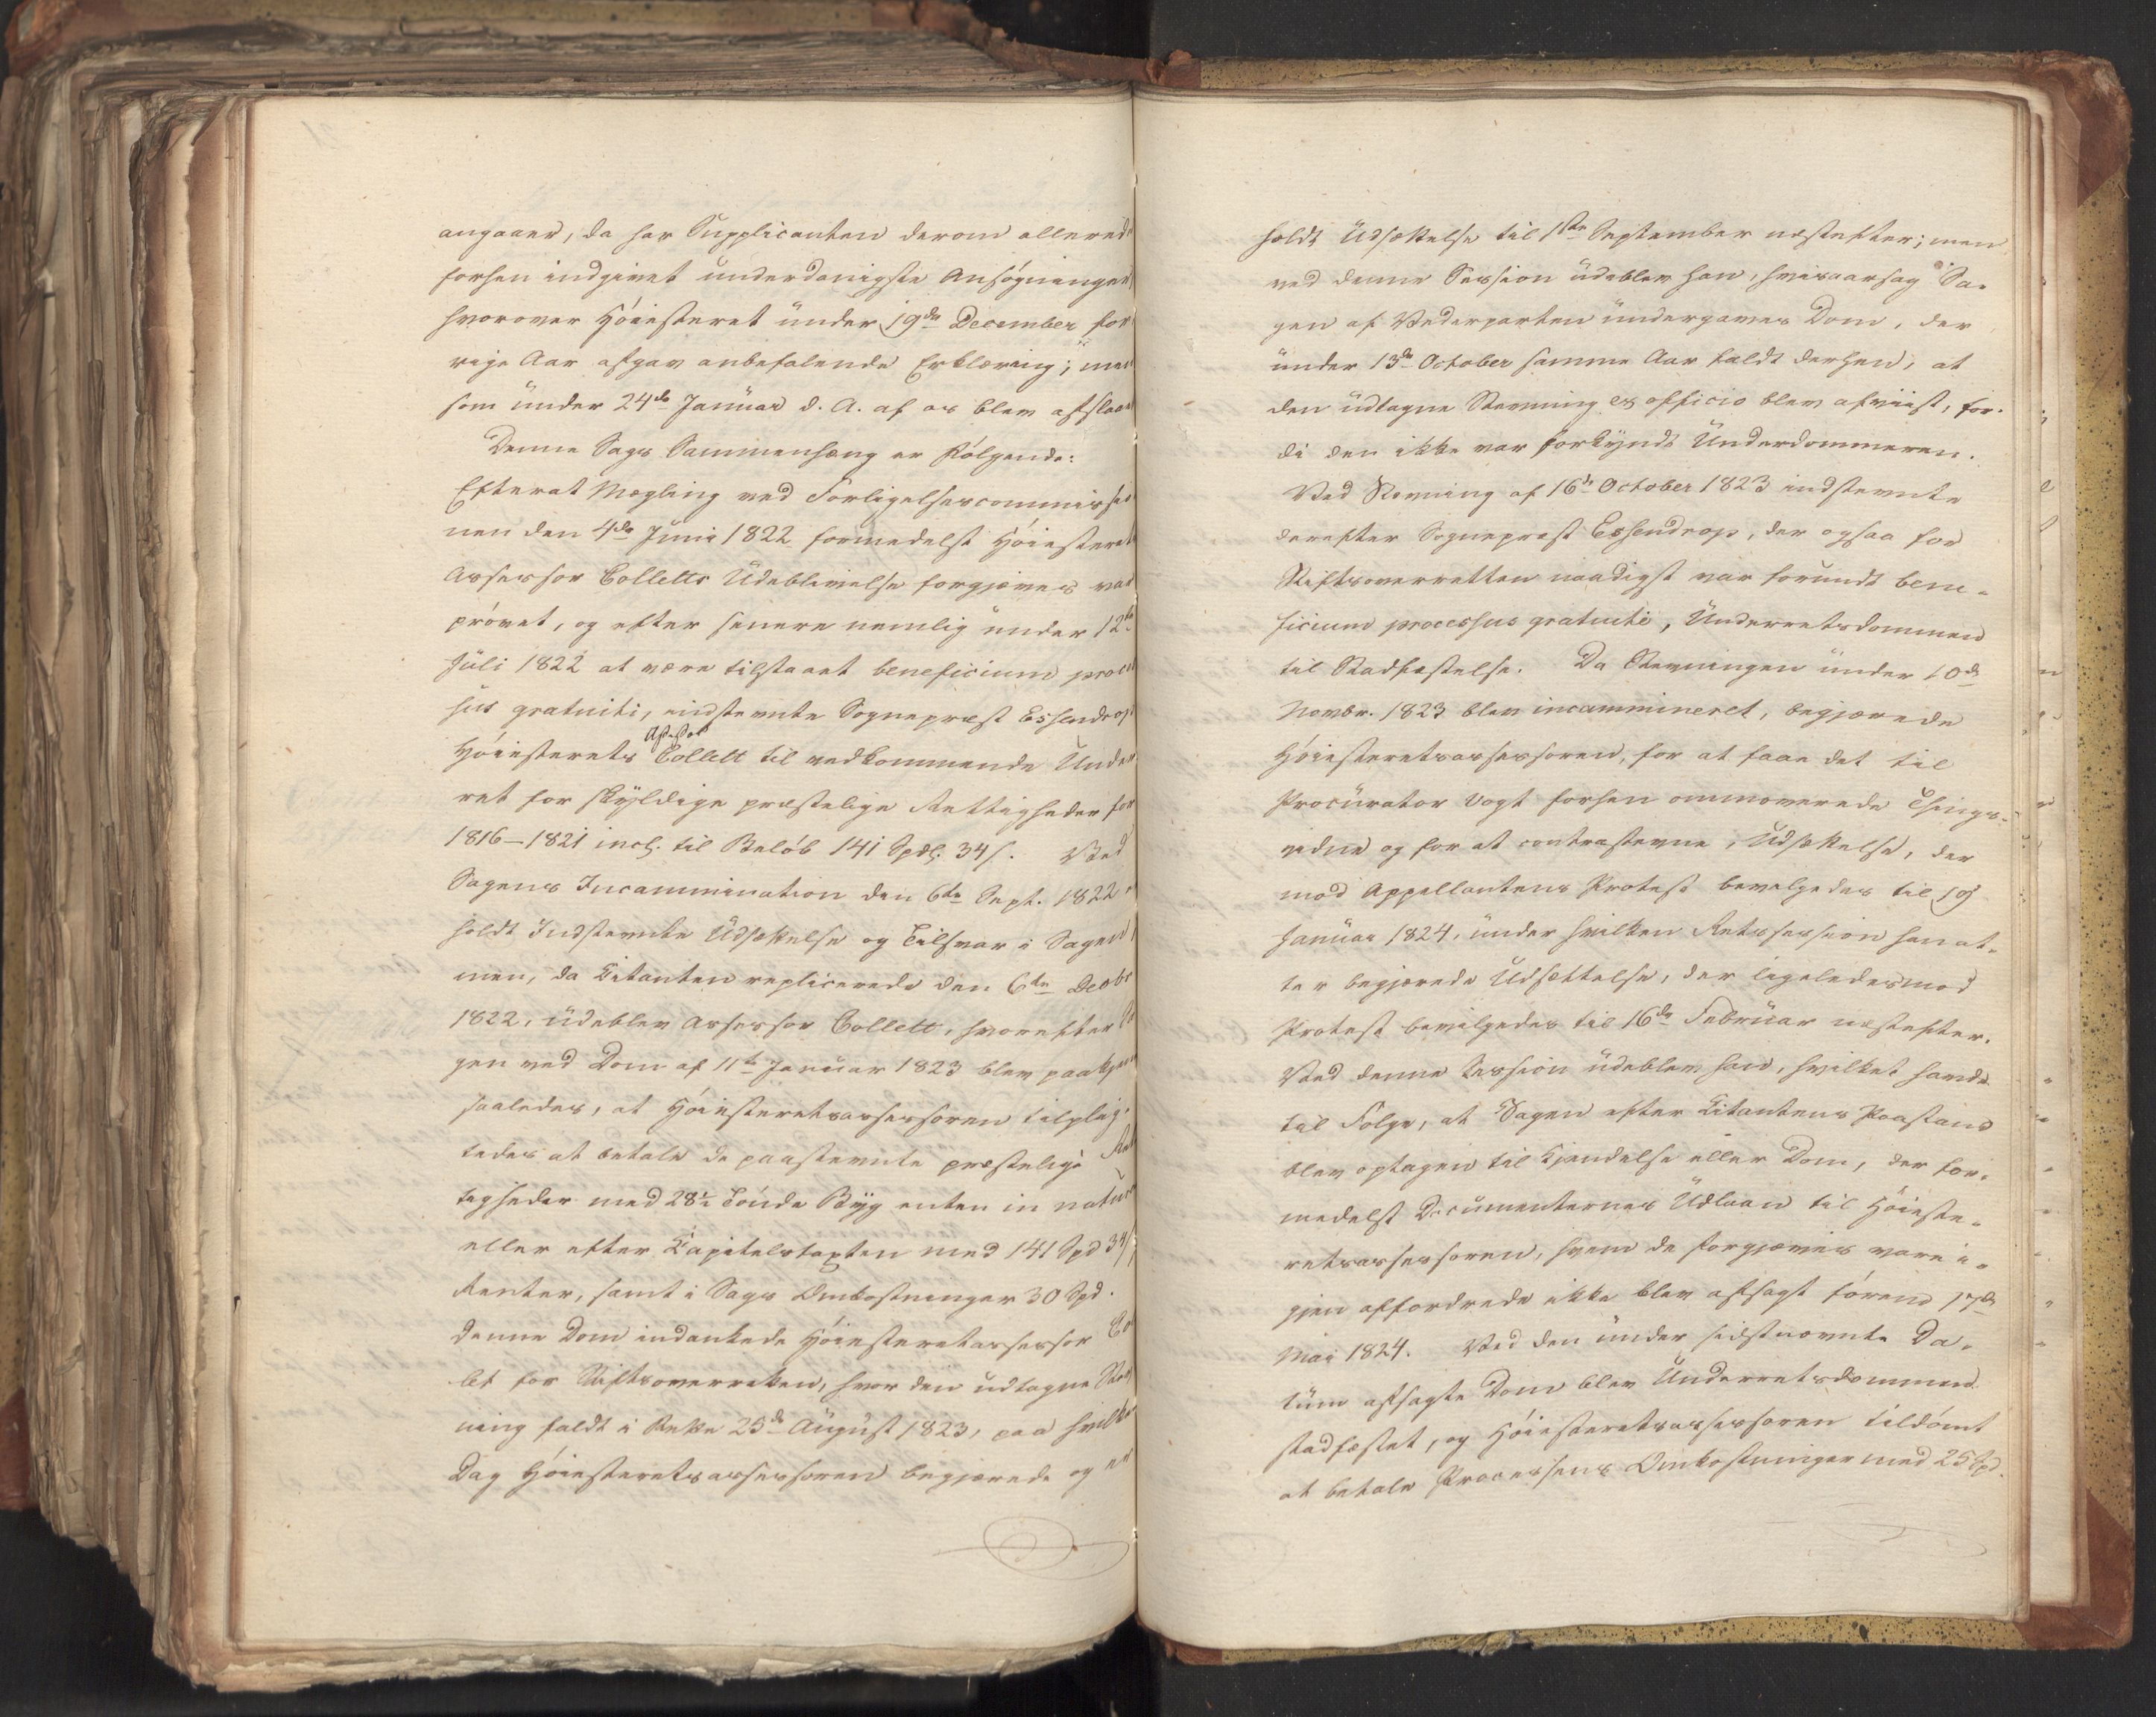 angaaer, da har Supplicanten derom allerede
forhen indgivet underdanigste Ansøgninger
hvorover Høiesteret under 19de December for
rige Aar afgav anbefalende Erklæring; men
som under 24de Januar d. A. af os blev afslaaet
Denne Sags Sammenhæng er følgende:
Efterat Mægling ved Forligelsescommissio
nen den 4de Juni 1822 formedelst Høiesterets
Assessor Colletts Udeblivelse forgjæves var
prøvet, og efter senere nemlig under 12te
Juli 1822 at være tilstaaet beneficium proces
sus gratuiti, indstevnte Sognepræst Essendrop
Høiesterets Assessor Collett til vedkommende Under
ret for skyldige præstelige Rettigheder for
1816–1821 incl. til Beløb 141 Spdl. 34 s. Ved
Sagens Incammination den 6te Sept. 1822
holdt Indstevnte Udsættelse og Tilsvar i Sagen,
men, da Citanten replicerede den 6te Decbr
1822, udeblev Assessor Collett, hvorefter Sa
gen ved Dom af 11te Januar 1823 blev paakjendt
saaledes, at Høiesteretsassessoren tilplig-
tedes at betale de paastevnte præstelige Ret
tigheder med 28½ Tønde Byg enten in natura
eller efter Capitelstaxten med 141 Spd 34 s,
Renter, samt i Sags Omkostninger 30 Spd.
Denne Dom indankede Høiesteretsassessor Col
let for Stiftsoverretten, hvor den udtagne Stev
ning faldt i Rette 25de August 1823, paa hvilken
Dag Høiesteretsassessoren begjærede og er
holdt Udsættelse til 1ste September næstefter; men
ved denne Session udeblev han, hvisaarsag Sa-
gen af Vederparten undergaves Dom, der
under 13de October samme Aar faldt derhen, at
den udtagne Stevning ex officio blev afviist, for-
di den ikke var forkyndt Underdommeren.
Ved Stevning af 16de October 1823 indstevnte
derefter Sognepræst Essendrop, der ogsaa for
Stiftsoverretten naadigst var forundt bene-
ficium processus gratuiti, Underretsdommen
til Stadfæstelse. Da Stevningen under 10de
Novbr. 1823 blev incammineret, begjærede
Høiesteretsassessoren, for at faae det til
Procurator Vogt forhen ommoverede Things-
vidne og for at contrastevne, Udsættelse, der
mod Appellantens Protest bevilgedes til 19
Januar 1824, under hvilken Retssession han at-
ter begjærede Udsættelse, der ligeledes mod
Protest bevilgedes til 16de Februar næstefter.
Ved denne Session udeblev han, hvilket havde
til Følge, at Sagen efter Citantens Paastand
blev optagen til Kjendelse eller Dom, der for-
medelst Documenternes Udlaan til Høieste-
retsassessoren, hvem de forgjæves vare i-
gjen affordrede ikke blev afsagt førend 17de
Mai 1824. Ved den under sidstnævnte Da-
tum afsagte Dom blev Underretsdommen
stadfæstet, og Høiesteretsassessoren tildømt
at betale Processens Omkostninger med 25 Spd.